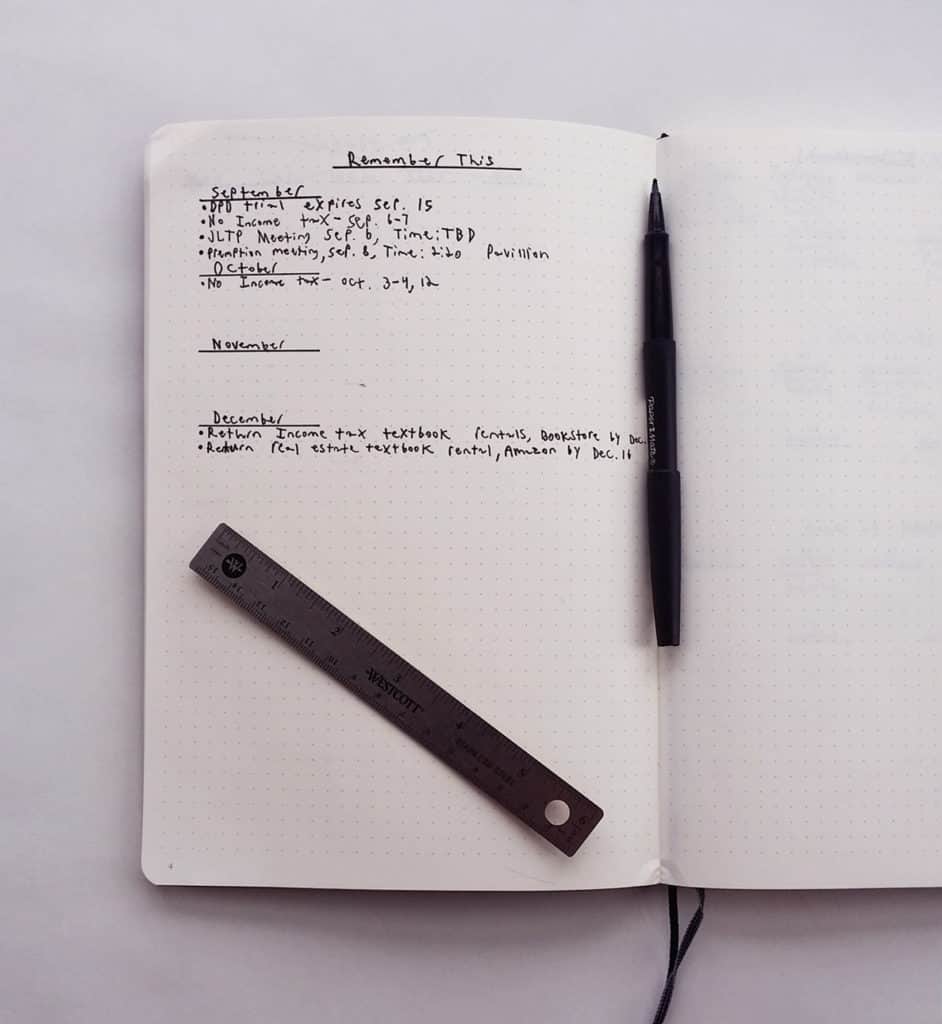 Remember This
September
• DPD trial expires Sep. 15
• No Income tax - Sep. 6-7
• JLTP Meeting Sep. 6, Time: TBD
• Premption meeting, Sep. 8, Time: 2:20 Pavillion
October
• No Income tax - Oct. 3-4, 12
November
December
• Return Income tax textbook rentals, Bookstore by Dec.
• Return real estate textbook rental, Amazon by Dec. 16
1
2
3
WESTCOTT
4
STAINLESS STEEL
5
6
4